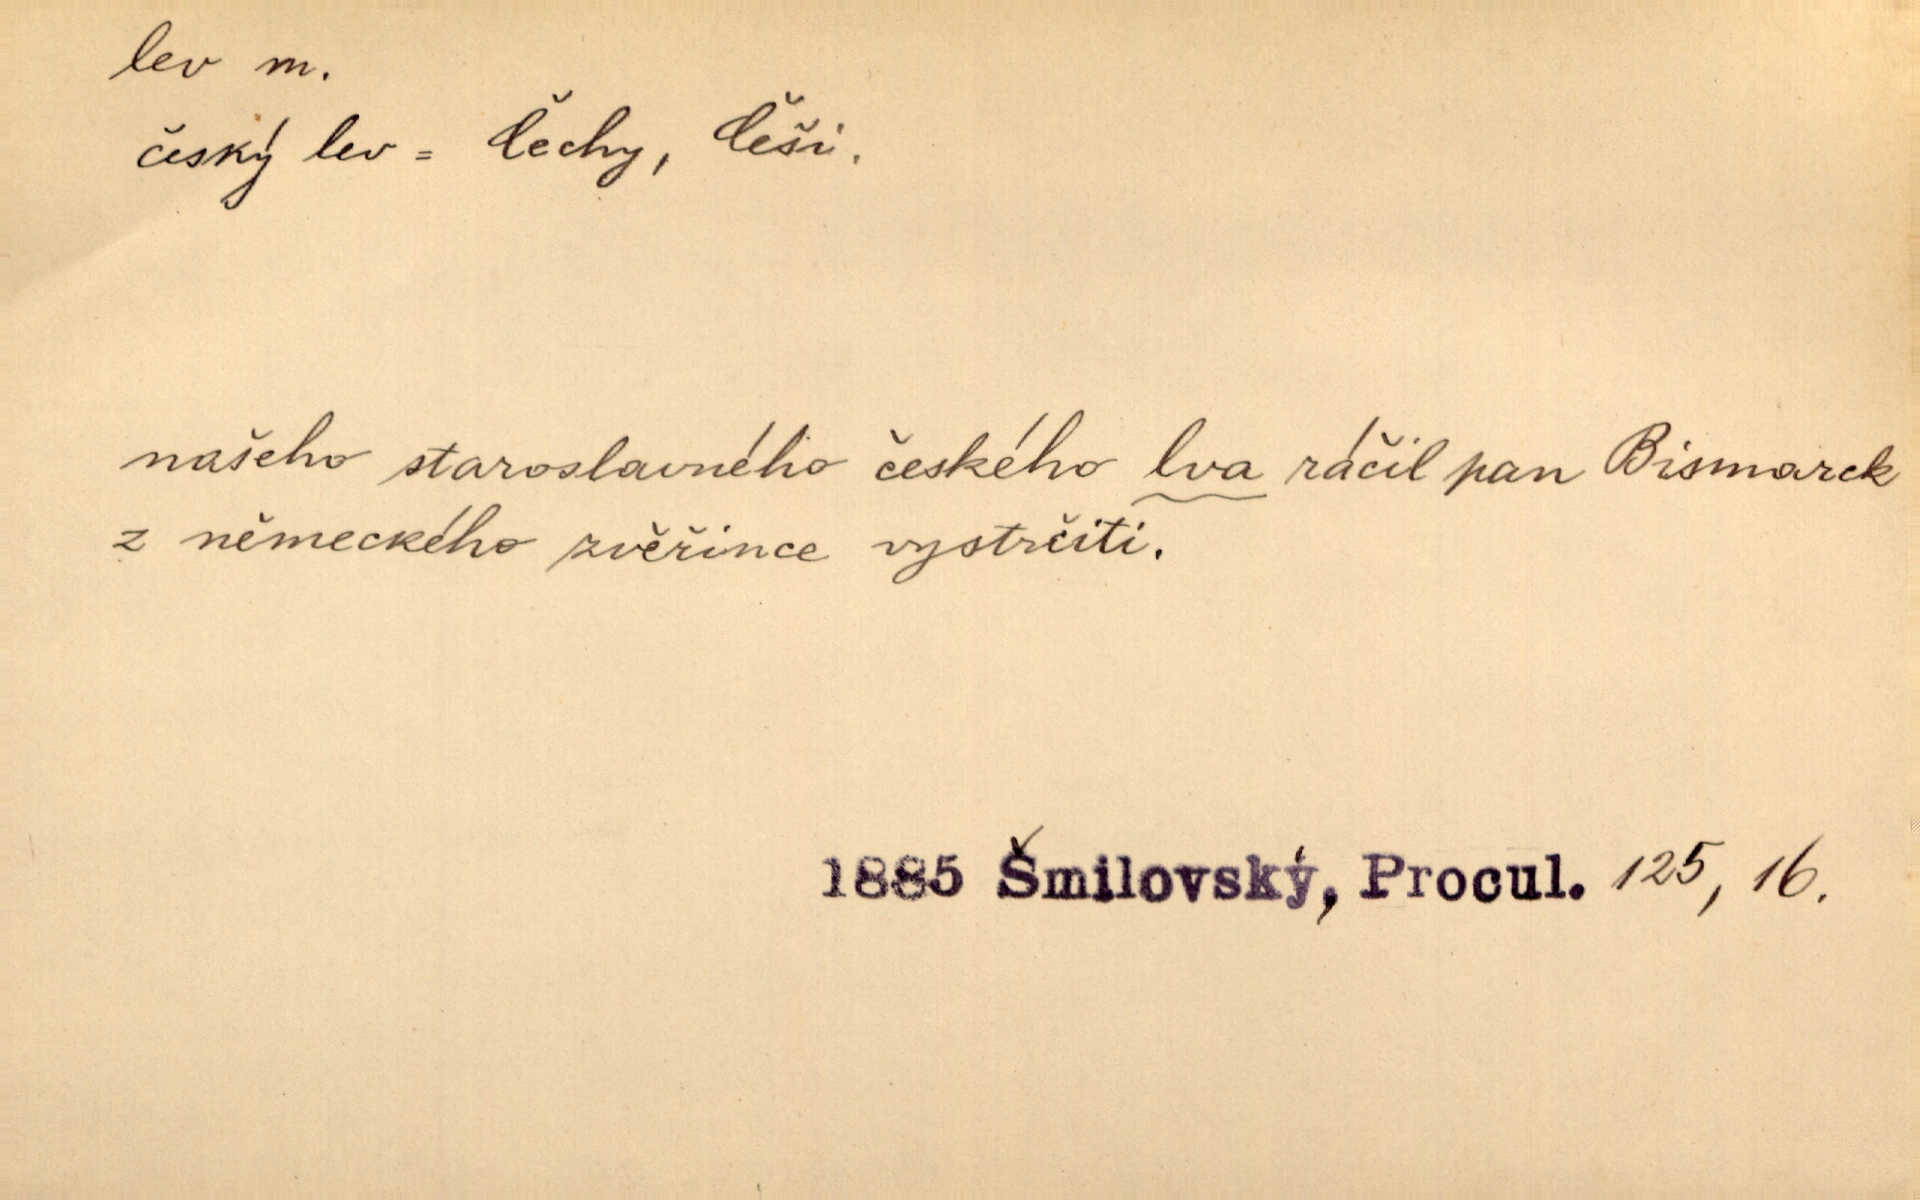 lev m.
český lev = Čechy, Češi.
našeho staroslavného českého lva ráčil pan Bismarck
z německého zvěřince vystrčiti.
1885 Šmilovský, Procul. 125, 16.